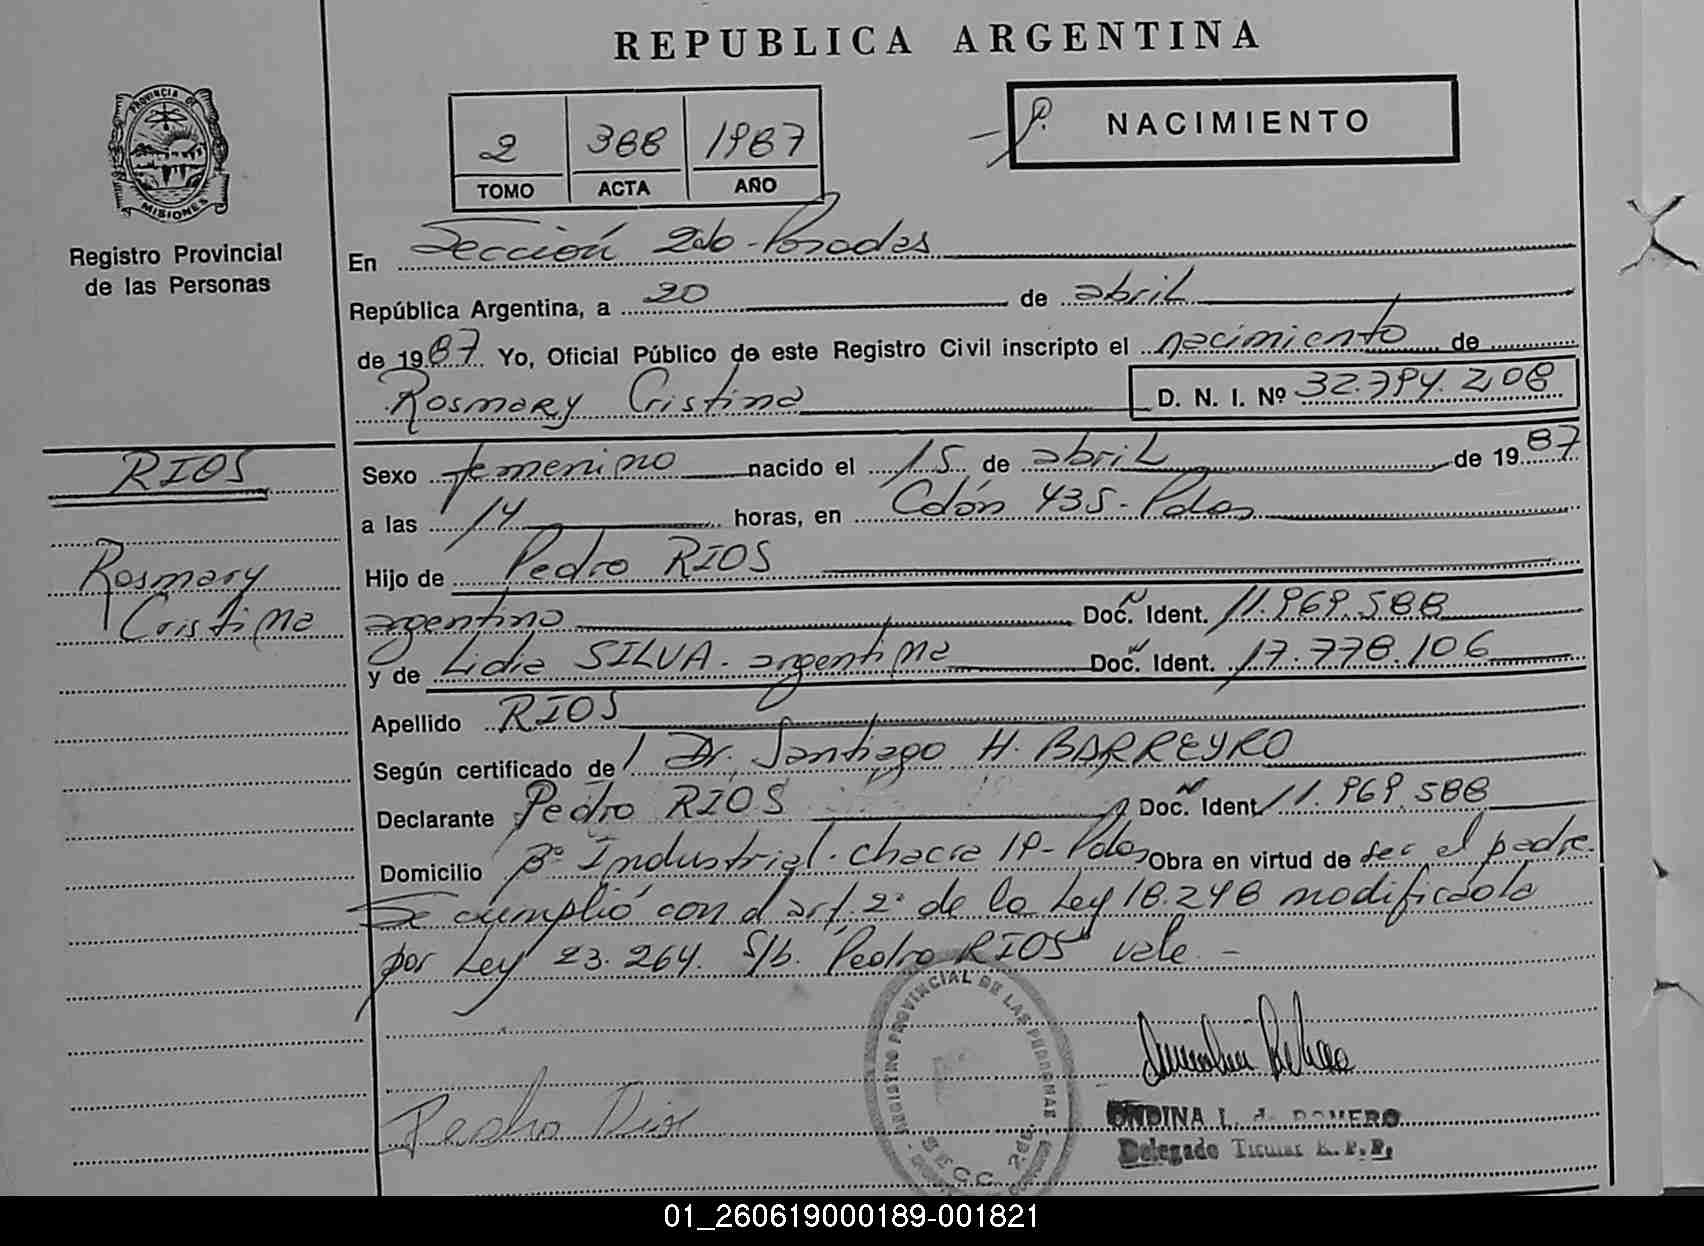 REPUBLICA ARGENTINA
PROVINCIA DE
MISIONES
Registro Provincial
de las Personas
2 388 1987
TOMO ACTA AÑO
P. NACIMIENTO
En Sección 2da-Posadas
República Argentina, a 20 de abril
de 1987 Yo, Oficial Público de este Registro Civil inscripto el nacimiento de
Rosmary Cristina D. N. I. Nº 32.794.208
RIOS
Rosmary
Cristina
Sexo femenino nacido el 15 de abril de 1987
a las 14 horas, en Colón 435-Pdas
Hijo de Pedro RIOS
argentino Doc. Ident. 11.969.588
y de Lidia SILVA. argentina Doc. Ident. 17.778.106
Apellido RIOS
Según certificado de Dr. Santiago H. BARREYRO
Declarante Pedro RIOS Doc. Ident 11.969.588
Domicilio Bº Industrial. chacra 19-Pdas Obra en virtud de ser el padre.
Se cumplió con el art. 2º de la Ley 18.248 modificada
por Ley 23.264. S/b. "Pedro RIOS" vale.-
REGISTRO PROVINCIAL DE LAS PERSONAS
SECC. 2da.
Pedro Rios
ONDINA L. de ROMERO
Delegado Titular R.P.P.
01_260619000189-001821